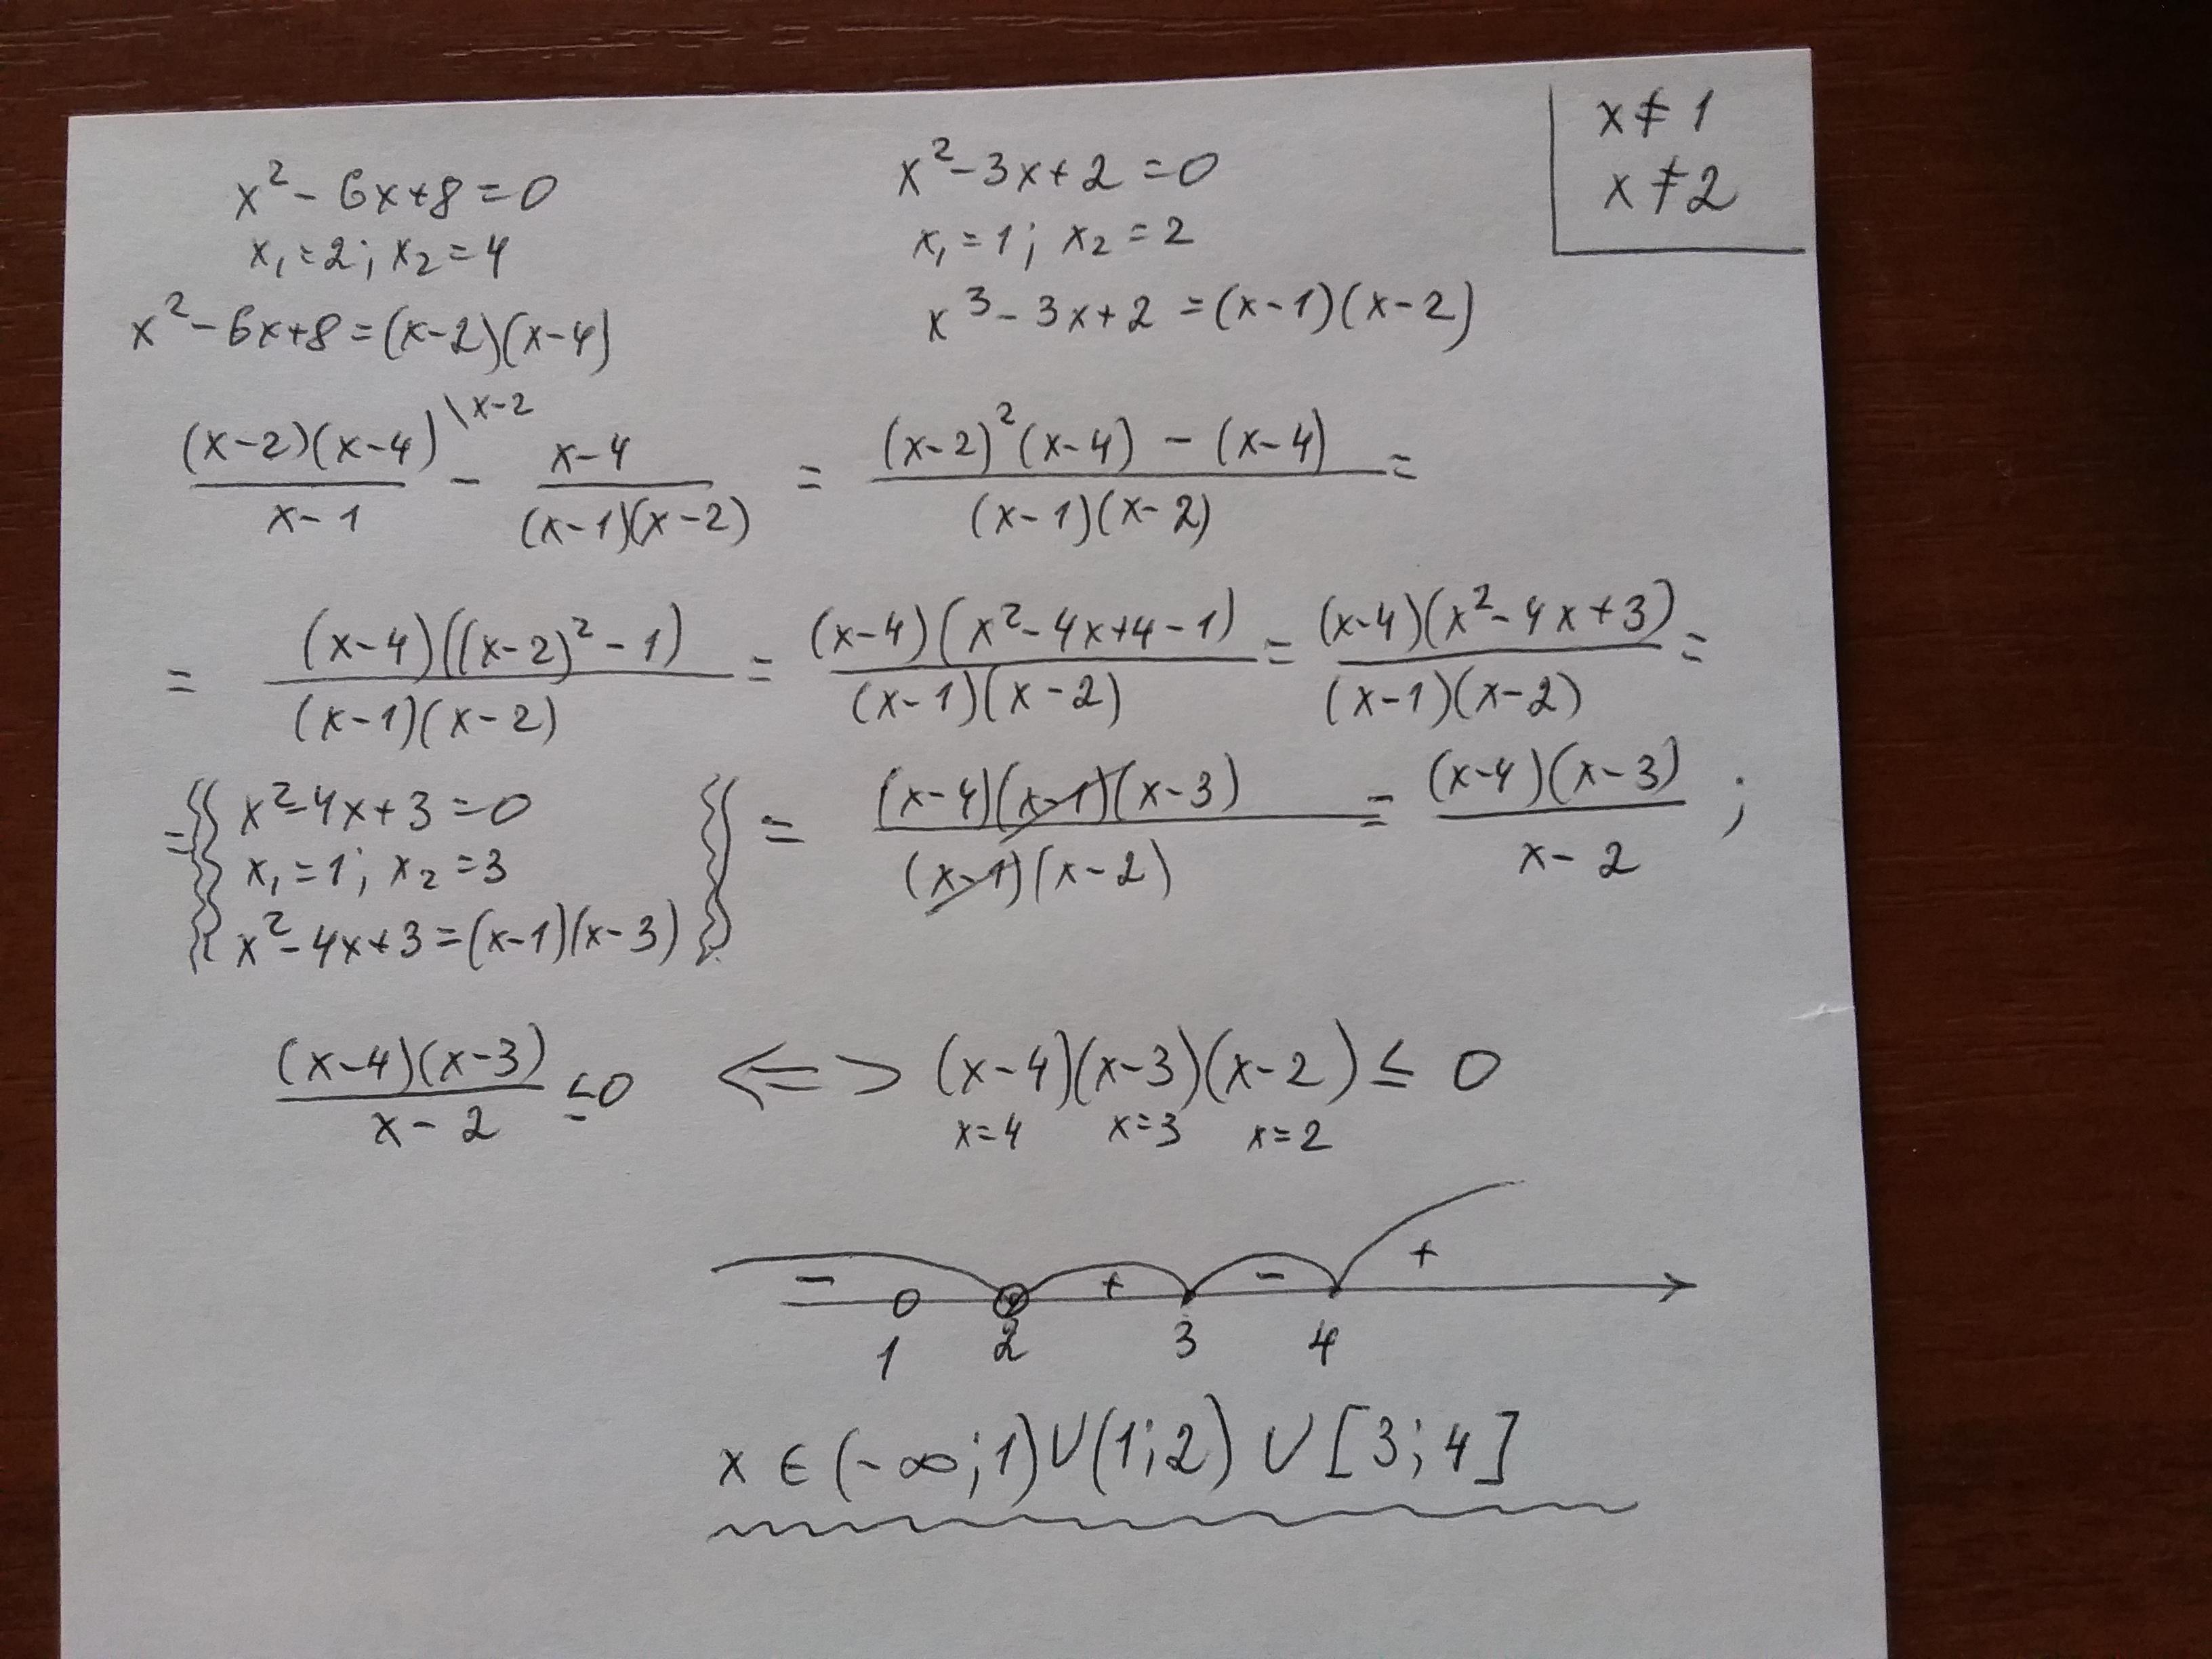 x² - 6x+8=0
x₁=2; x₂=4
x²-6x+8=(x-2)(x-4)
x²-3x+2=0
x₁=1; x₂=2
x³-3x+2=(x-1)(x-2)
x≠1
x≠2
(x-2)(x-4)\x-2 / x-1 - x-4 / (x-1)(x-2) = (x-2)²(x-4) - (x-4) / (x-1)(x-2) =
= (x-4)((x-2)²-1) / (x-1)(x-2) = (x-4)(x²-4x+4-1) / (x-1)(x-2) = (x-4)(x²-4x+3) / (x-1)(x-2) =
={{ x²-4x+3=0
x₁=1; x₂=3
x²-4x+3=(x-1)(x-3) }
= (x-4)(x-1)(x-3) / (x-1)(x-2) = (x-4)(x-3) / x-2 ;
(x-4)(x-3) / x-2 ≤0 <=> (x-4)(x-3)(x-2) ≤ 0
x=4 x=3 x=2
- + - +
1 2 3 4
x ∈ (-∞;1)∪(1;2)∪[3;4]